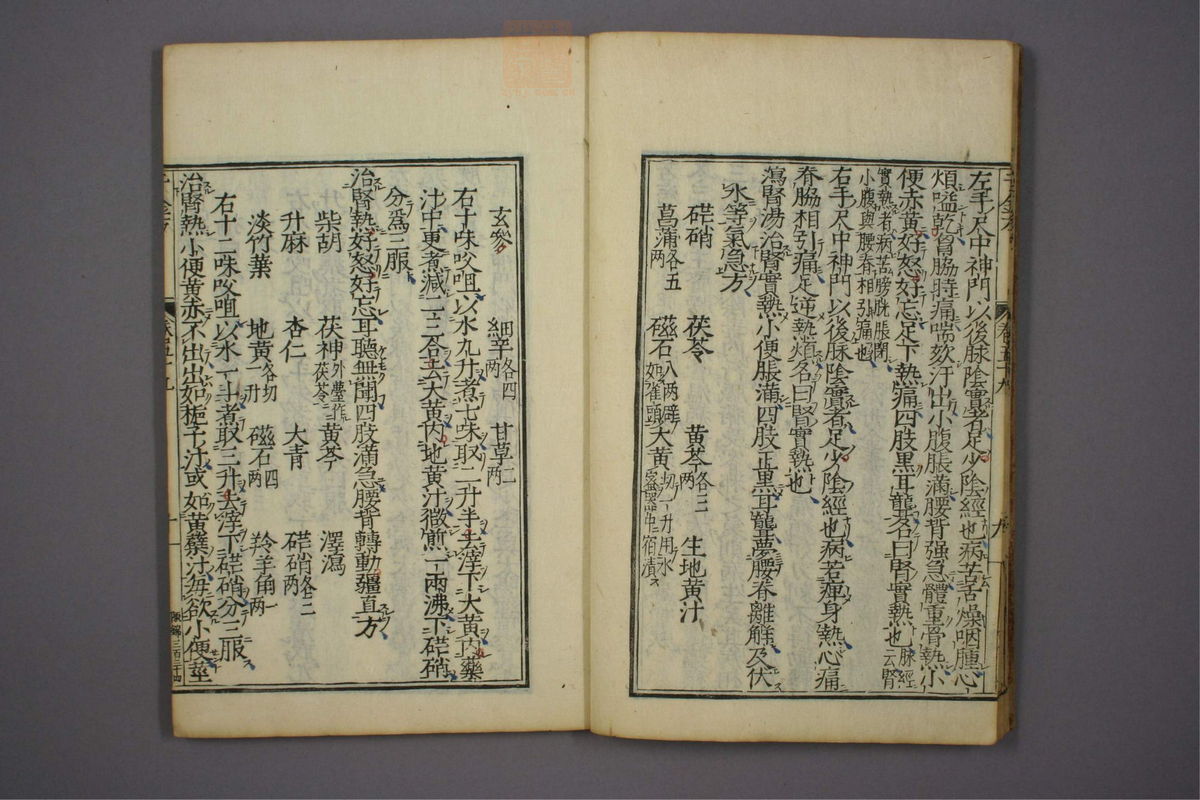 左手尺中神門以後脉陰實者足少陰經也病苦舌燥咽腫心
煩嗌乾胷脇時痛喘欬汗出小腹脹滿腰背强急體重骨熱小
便赤黄好怒好忘足下熱痛四肢黑耳聾名曰腎實熱也脉經云腎
實熱者病苦膀胱脹閉
小腹與腰脊相引痛也
右手尺中神門以後脉陰實者足少陰經也病苦痺身熱心痛
脊脇相引痛足逆熱煩名曰腎實熱也
瀉腎湯治腎實熱小便脹滿四肢正黑耳聾夢腰脊離解及伏
水等氣急方
硭硝 茯苓 黄芩各三兩 生地黄汁
菖蒲各五兩 磁石八兩碎如雀頭 大黄切一升用水密器中宿漬
玄參 細辛各四兩 甘草二兩
右十味㕮咀以水九升煮七味取二升半去滓下大黄内藥
汁中更煮減二三合去大黄内地黄汁微煎一兩沸下硭硝
分爲三服
治腎熱好怒好忘耳聽無聞四肢滿急腰背轉動彊直方
柴胡 茯神外臺作茯苓 黄芩 澤瀉
升麻 杏仁 大青 硭硝各三兩
淡竹葉 地黄各切一升 磁石四兩 羚羊角一兩
右十二味㕮咀以水一斗煮取三升去滓下硭硝分三服
治腎熱小便黄赤不出出如梔子汁或如黄蘗汁每欲小便莖